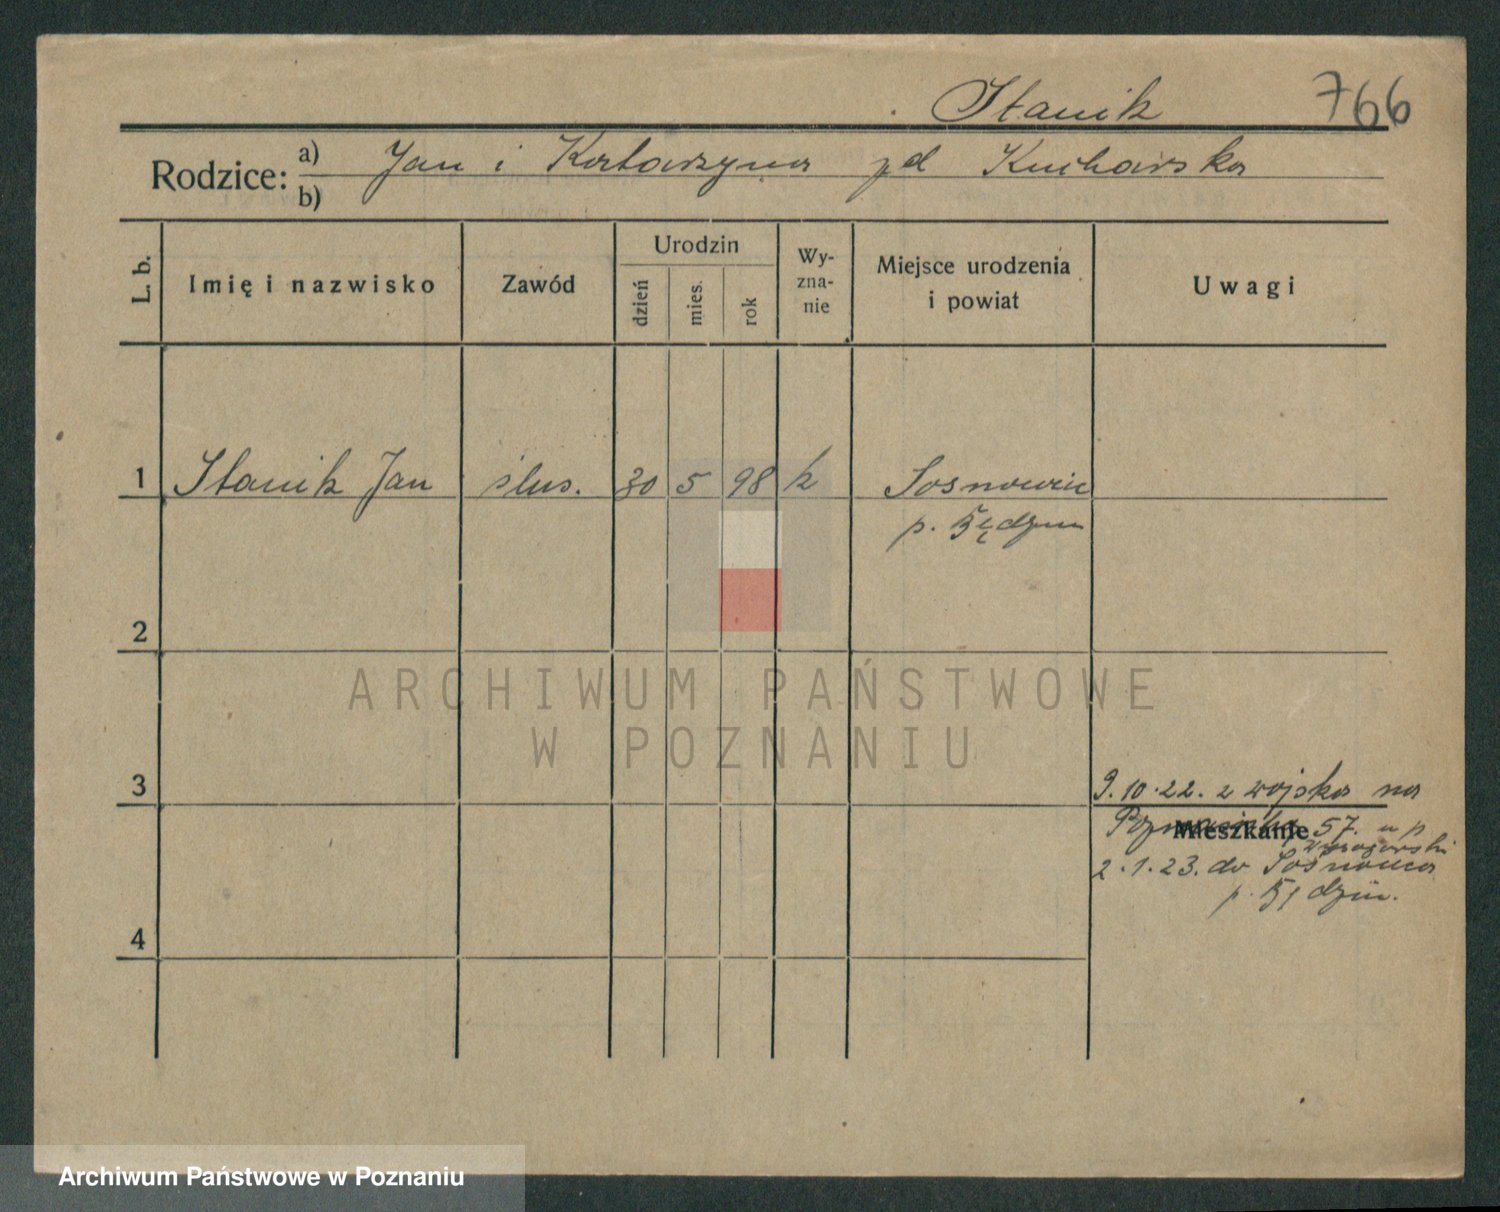 Stanik 766
Rodzice: a) Jan i Katarzyna zd Kucharska
b)
L. b. Imię i nazwisko Zawód Urodzin dzień mies. rok Wy-zna-nie Miejsce urodzenia i powiat Uwagi
1 Stanik Jan ślus. 30 5 98 k Sosnowiec
p. Będzin
2
ARCHIWUM PAŃSTWOWE
W POZNANIU
3 9.10.22. z wojska na
Mieszkanie 57. u p
2.1.23. do Sosnowca
p. Będzin.
4
Archiwum Państwowe w Poznaniu